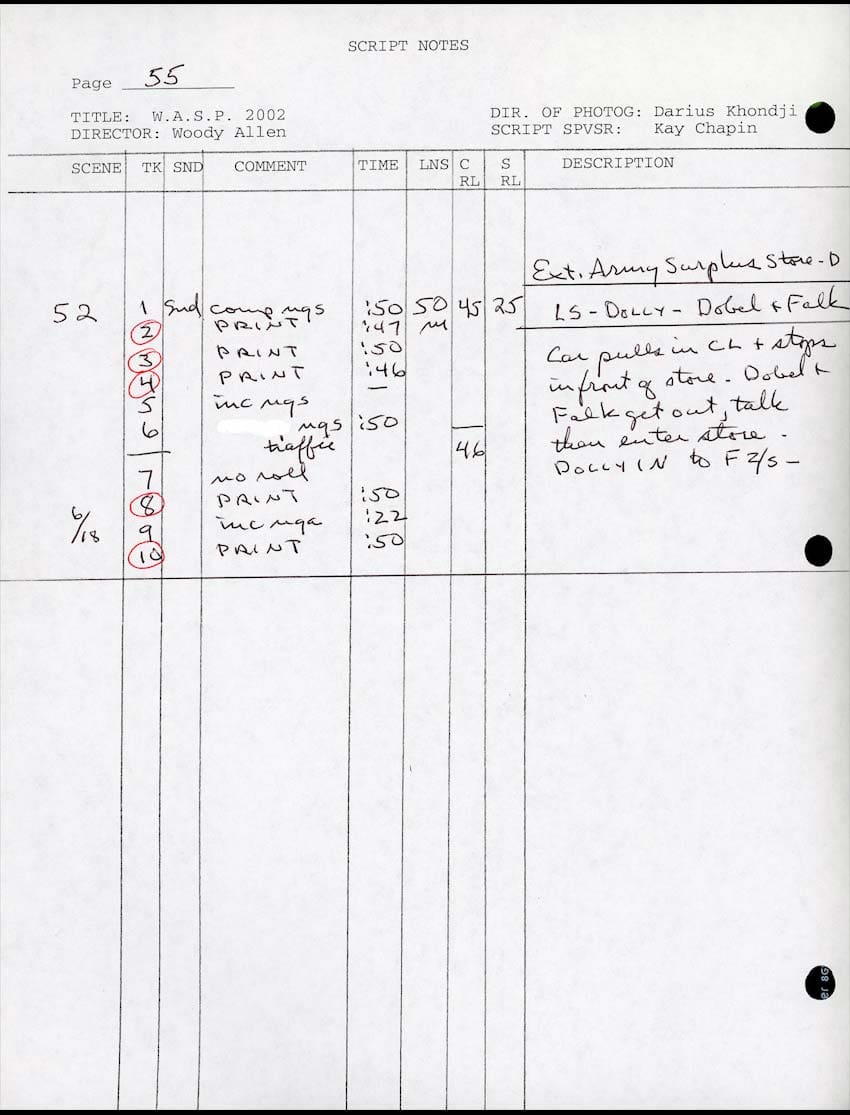 SCRIPT NOTES
Page 55
TITLE: W.A.S.P. 2002
DIRECTOR: Woody Allen
DIR. OF PHOTOG: Darius Khondji
SCRIPT SPVSR: Kay Chapin
SCENE TK SND COMMENT TIME LNS C RL S RL DESCRIPTION
Ext. Army Surplus Store - D
52 1 Snd comp ngs :50 50 45 25 LS - DOLLY - Dobel + Falk
2 PRINT :47
3 PRINT :50
4 PRINT :46
5 inc ngs —
6 ngs :50
traffic 46
7 no roll
8 PRINT :50
6/18 9 inc ngs :22
10 PRINT :50
Car pulls in CL + stops
in front of store. Dobel +
Falk get out, talk
then enter store.
DOLLY IN to F 2/s -